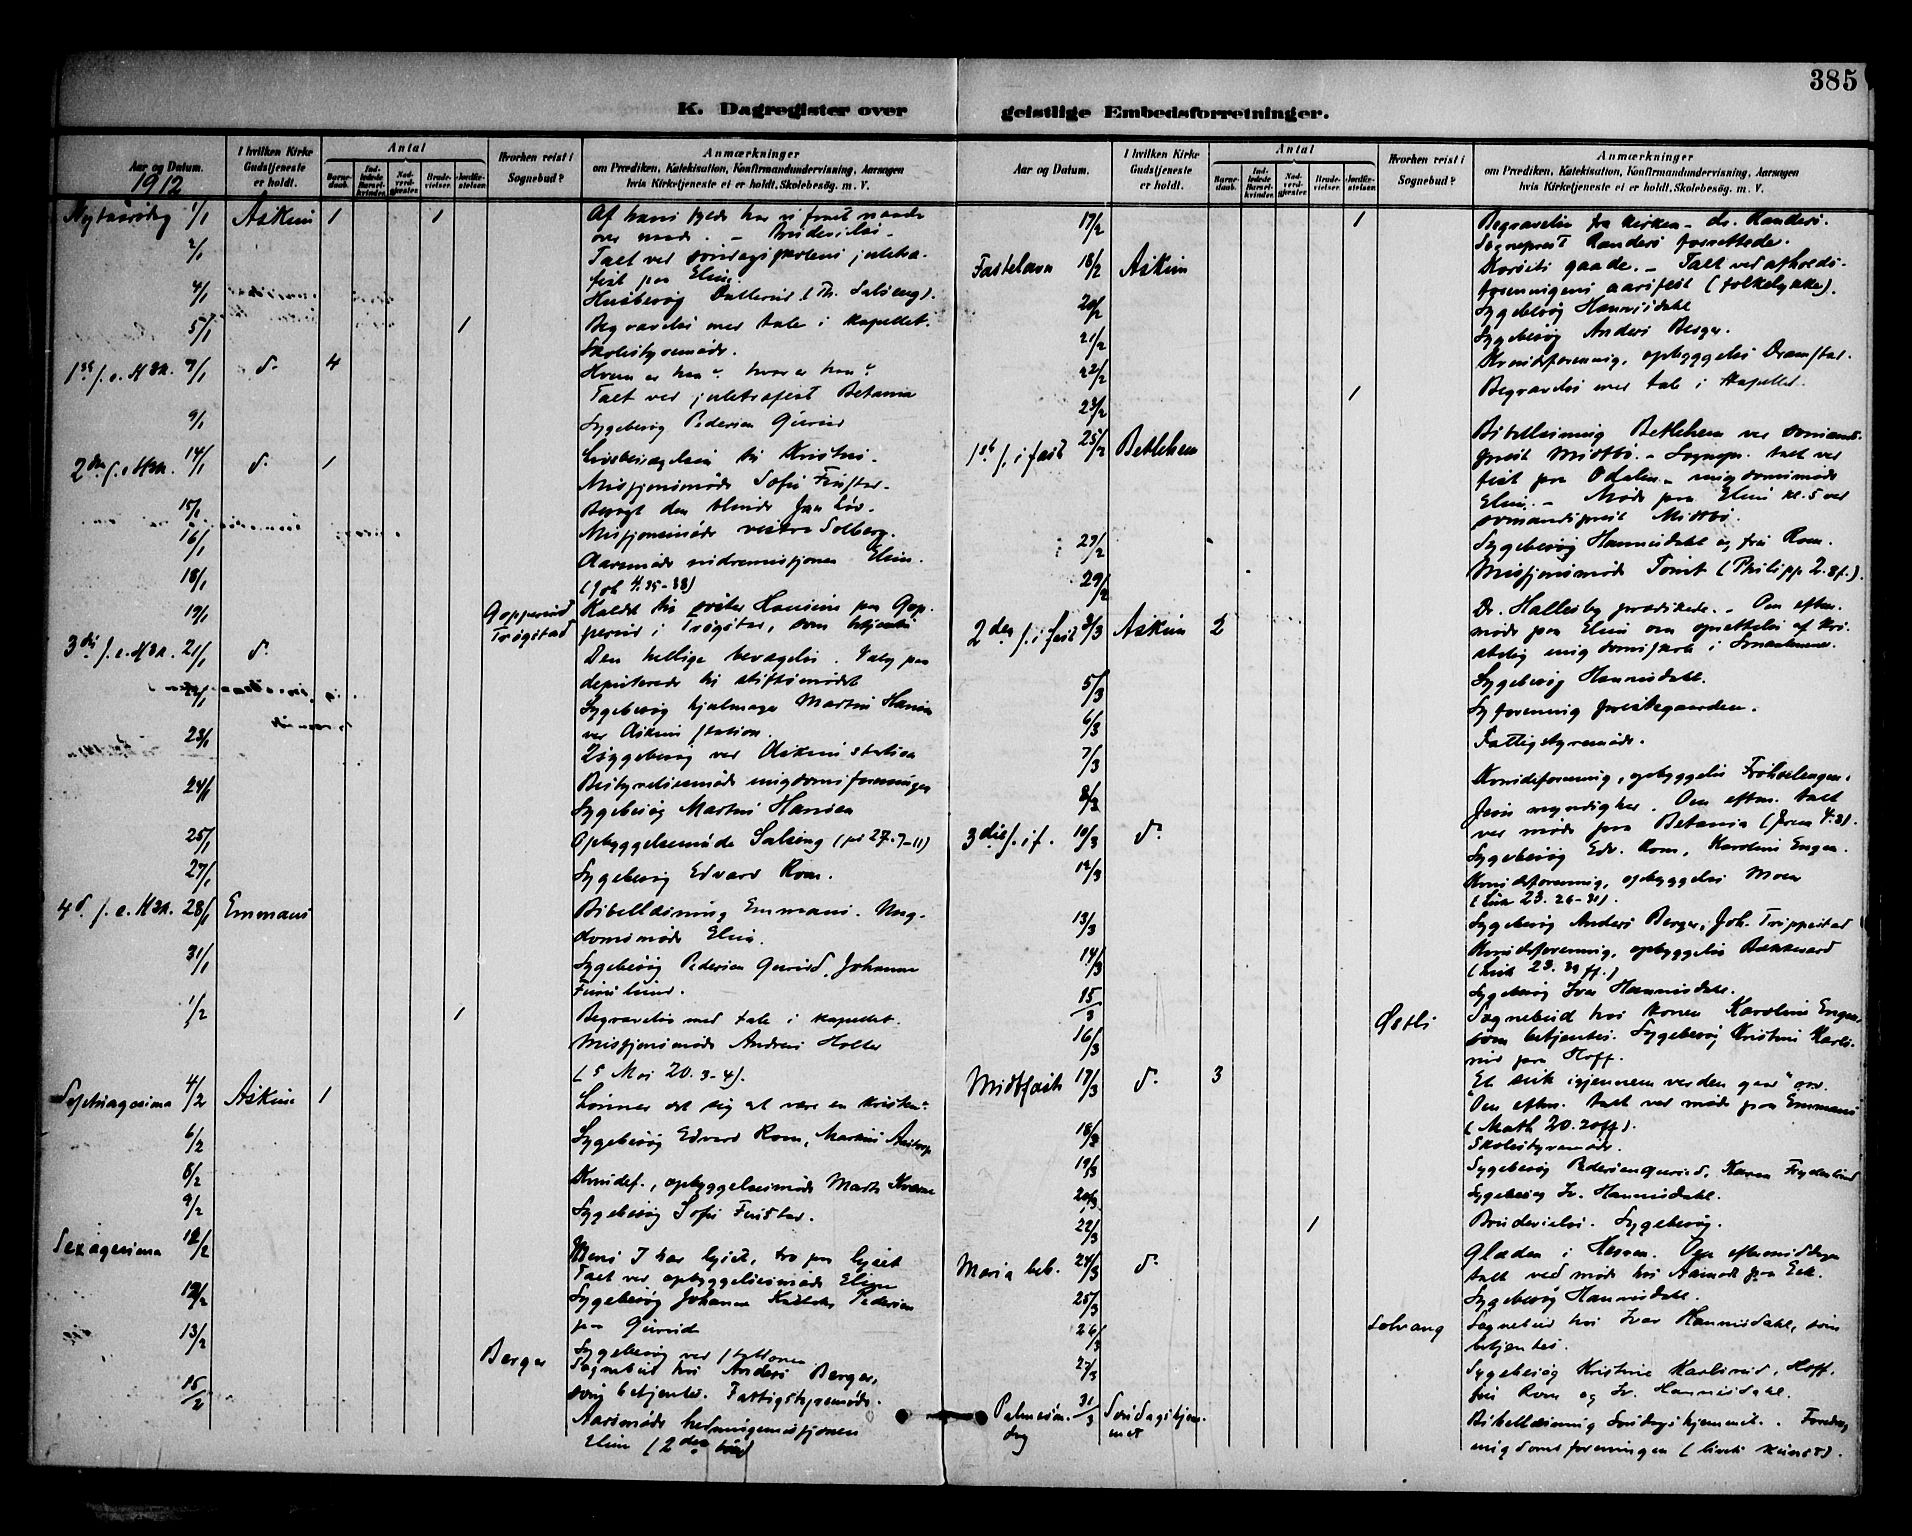 385
K. Dagregister over
Aar og Datum.
1912
I hvilken Kirke Gudstjeneste er holdt.
Antal
Barnedaab.
Indledede Barselkvinder.
Nadverdgjester.
Brudevielser.
Jordfæstelser.
Hvorhen reist i Sognebud?
Anmærkninger
om Prædiken, Katekisation, Konfirmandundervisning, Aarsagen
hvis Kirketjeneste ei er holdt, Skolebesøg. m. V.
Nytaarsdag 1/1 Askim 1 1 Af hans fylde har vi faaet naade
over naade. – Brudevielse.
2/1 Talt ved søndagsskolens juletræ-
fest paa Elim.
4/1 Husbesøg
5/1 1 Begravelse med tale i kapellet.
Skolestyremøde.
1ste s. e. H3K. 7/1 d. 4 Hvem er han? hvor er han?
Talt ved juletræfest Betania
9/1 Sygebesøg Pedersen
2den s. e. H3K. 14/1 d. 1 til Kristus.
Missjonsmøde Sofie
15/1 Besøgt den blinde Jan
16/1 Missjonsmøde vestre Solberg.
18/1 Aarsmøde indremissjonen Elim.
(Joh 4.35-38)
19/1 Trøgstad Kaldt til søster Hansine paa
i Trøgstad, som betjentes
3die s. e. H3K. 21/1 d. Den hellige bevægelse. Valg paa
deputerede til stiftsmødet
Sygebesøg Martin Hansen
ved Askim station.
23/1 2 sygebesøg ved Askim station
24/1 Bestyrelsesmøde ungdomsforeningen
Sygebesøg Martin Hansen
25/1 Opbyggelsesmøde Salseng
27/1 Sygebesøg Edvard Rom.
4d. s. e. H3K. 28/1 Emmaus Bibellæsning Emmaus. Ung-
domsmøde Elim.
31/1 Sygebesøg Pedersen Johanne
1/2 1 Begravelse med tale i kapellet.
Missjonsmøde Andreas Holter
(5 Mos 20. 3-4).
Septuagesima 4/2 Askim 1 Lønner det sig at være en kristen?
6/2 Sygebesøg Edvard Rom, Martin
8/2 Kvindef., opbyggelsesmøde
9/2 Sygebesøg Sofie
Sexagesima Mens I har lyset, tro paa lyset
Talt ved opbyggelsesmøde Elim
12/2 Sygebesøg Johanne Pedersen
paa
13/2 Sygebesøg ved stationen
Berger Sognebud hos Anders Berger,
som betjentes. Fattigstyremøde.
15/2 Aarsmøde hedningemissjonen
Elim
geistlige Embedsforretninger.
Aar og Datum.
I hvilken Kirke Gudstjeneste er holdt.
Antal
Barnedaab.
Indledede Barselkvinder.
Nadverdgjester.
Brudevielser.
Jordfæstelser.
Hvorhen reist i Sognebud?
Anmærkninger
om Prædiken, Katekisation, Konfirmandundervisning, Aarsagen
hvis Kirketjeneste ei er holdt. Skolebesøg. m. V.
17/2 1 Begravelse fra kirken – dr. Randers.
Sogneprest Randers forrettede.
Fastelavn 18/2 Askim Korsets gaade. – Talt ved afholds-
foreningens aarsfest (folkelykke).
20/2 Sygebesøg Hannisdahl
21/2 Sygebesøg Anders Berger.
22/2 Kvindeforening, opbyggelse
23/2 1 Begravelse med tale i kapellet.
1ste s. i fast 25/2 Betlehem Bibellæsning Betlehem ved sømands-
prest Midtbø. – Sognepr. talt ved
fest paa – ungdomsmøde
Elim. – Møde paa Elim kl. 5 ved
sømandsprest Midtbø.
27/2 Sygebesøg Hannisdahl og fru Rom.
29/2 Missjonsmøde Tomt (Philipp. 2. 8f.).
2den s. i fast 3/3 Askim 2 Dr. Hallesby prædikede. – Om efterm.
møde paa Elim om oprettelse af kri-
stelig ungdomsskole i Smaalenene.
5/3 Sygebesøg Hannisdahl.
6/3 Syforening prestegaarden.
7/3 Fattigstyremøde.
8/3 Kvindeforening, opbyggelse
3die s. i f. 10/3 d. Jesu myndighed. Om efterm. talt
ved møde paa Betania
12/3 Sygebesøg Edv. Rom, Karoline Engen.
Kvindeforening, opbyggelse Moen
(Luk 23. 26-31).
13/3 Sygebesøg Anders Berger, Joh. Trippestad
14/3 Kvindeforening, opbyggelse
(Luk 23. 39 ff.)
15/3 Sygebesøg Ivar Hannisdahl.
16/3 Østli Sognebud hos konen Karoline Engen,
som betjentes. Sygebesøg Kristine Karls-
rud paa Hoff.
Midtfaste 17/3 d. 3 "Et suk igjennem verden gaar" osv.
Om efterm. talt ved møde paa Emmaus
(Math 20. 20ff).
18/3 Skolestyremøde.
19/3 Sygebesøg Pedersen Karen Frydenlund
20/3 Sygebesøg Iv. Hannisdahl.
22/3 1 Brudevielse. Sygebesøg.
Maria beb. 24/3 d. Glæden i Herren. Om eftermiddagen
talt ved møde hos Aamodt paa Eek.
25/3 Sygebesøg Hannisdahl.
26/3 Solvang Sognebud hos Ivar Hannisdahl, som
betjentes.
27/3 Sygebesøg Kristine Karlsrud, Hoff.
fru Rom og Iv. Hannisdahl.
Palmesøn- 31/3 Søndagshjem- Bibellæsning Søndagshjemmet. Foredrag
dag met ungdomsforeningen (livets kunst).